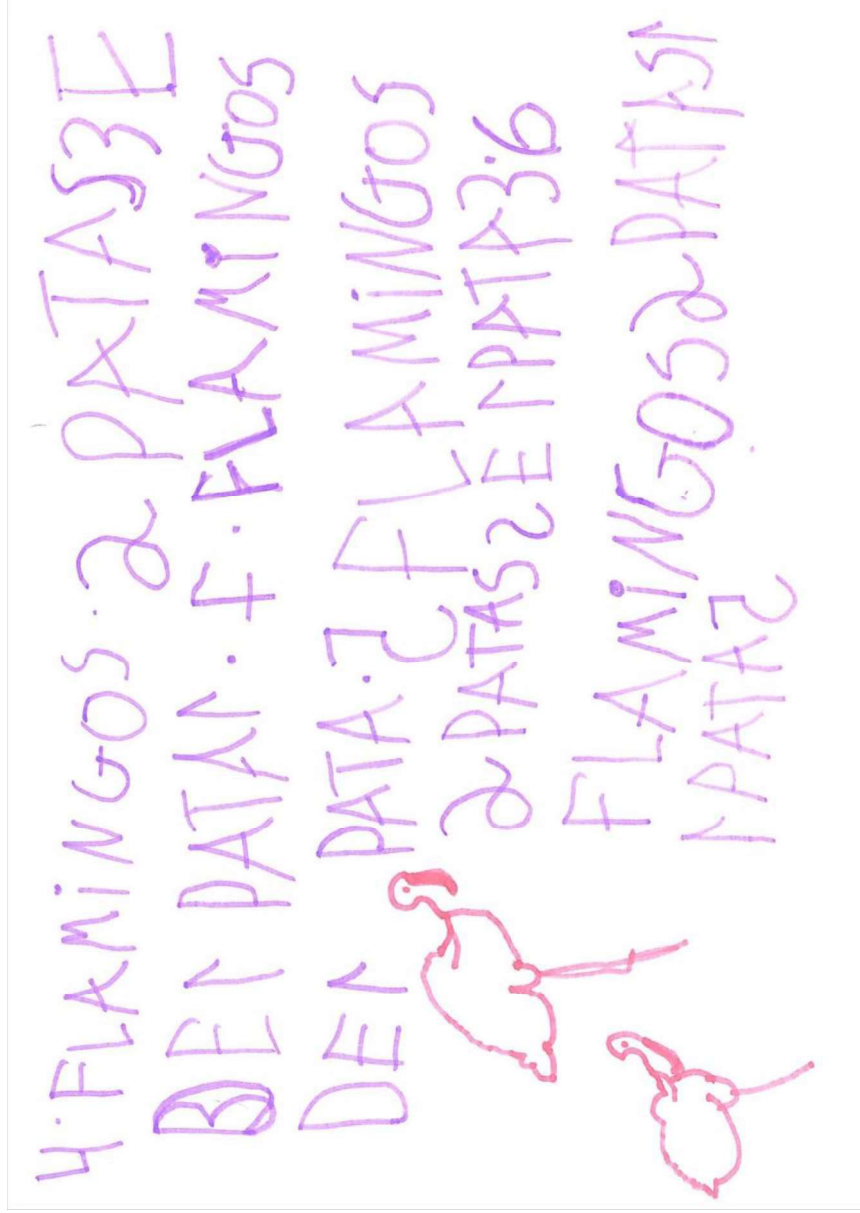 4.FLAMiNGOS.2 PATAS3 E
DE1 PATA1.F.FLAMiNGOS
DE1 PATA.5 FLAMiNGOS
2 PATAS2E 1PATA3.6
FLAMiNGOS2PATAS1
1PATA